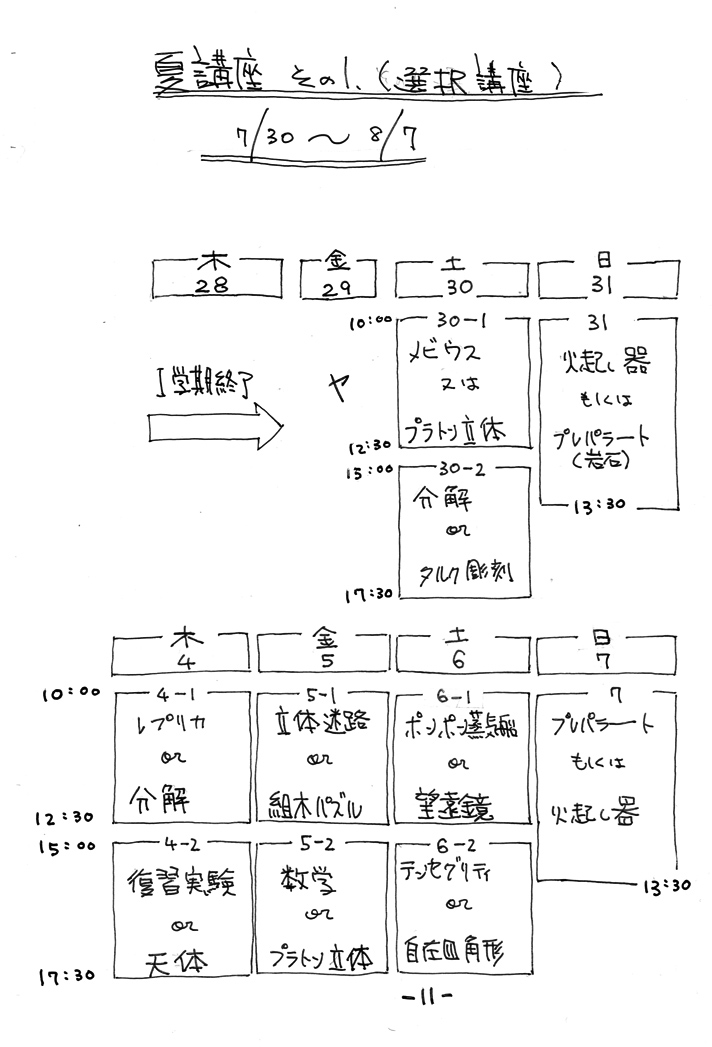 夏講座 その1.(選択講座)
7/30 〜 8/7
木 金 土 日
28 29 30 31
10:00 30-1 31
メビウス 火起し器
I学期終了 ヤ 又は もしくは
プラトン立体 プレパラート
12:30 (岩石)
15:00 30-2
分解 13:30
or
タルク彫刻
17:30
木 金 土 日
4 5 6 7
10:00 4-1 5-1 6-1 7
レプリカ 立体迷路 ポンポン蒸気船 プレパラート
or or or もしくは
分解 組木パズル 望遠鏡 火起し器
12:30
15:00 4-2 5-2 6-2
復習実験 数学 テンセグリティ
13:30
or or or
天体 プラトン立体 自在四角形
17:30
-11-